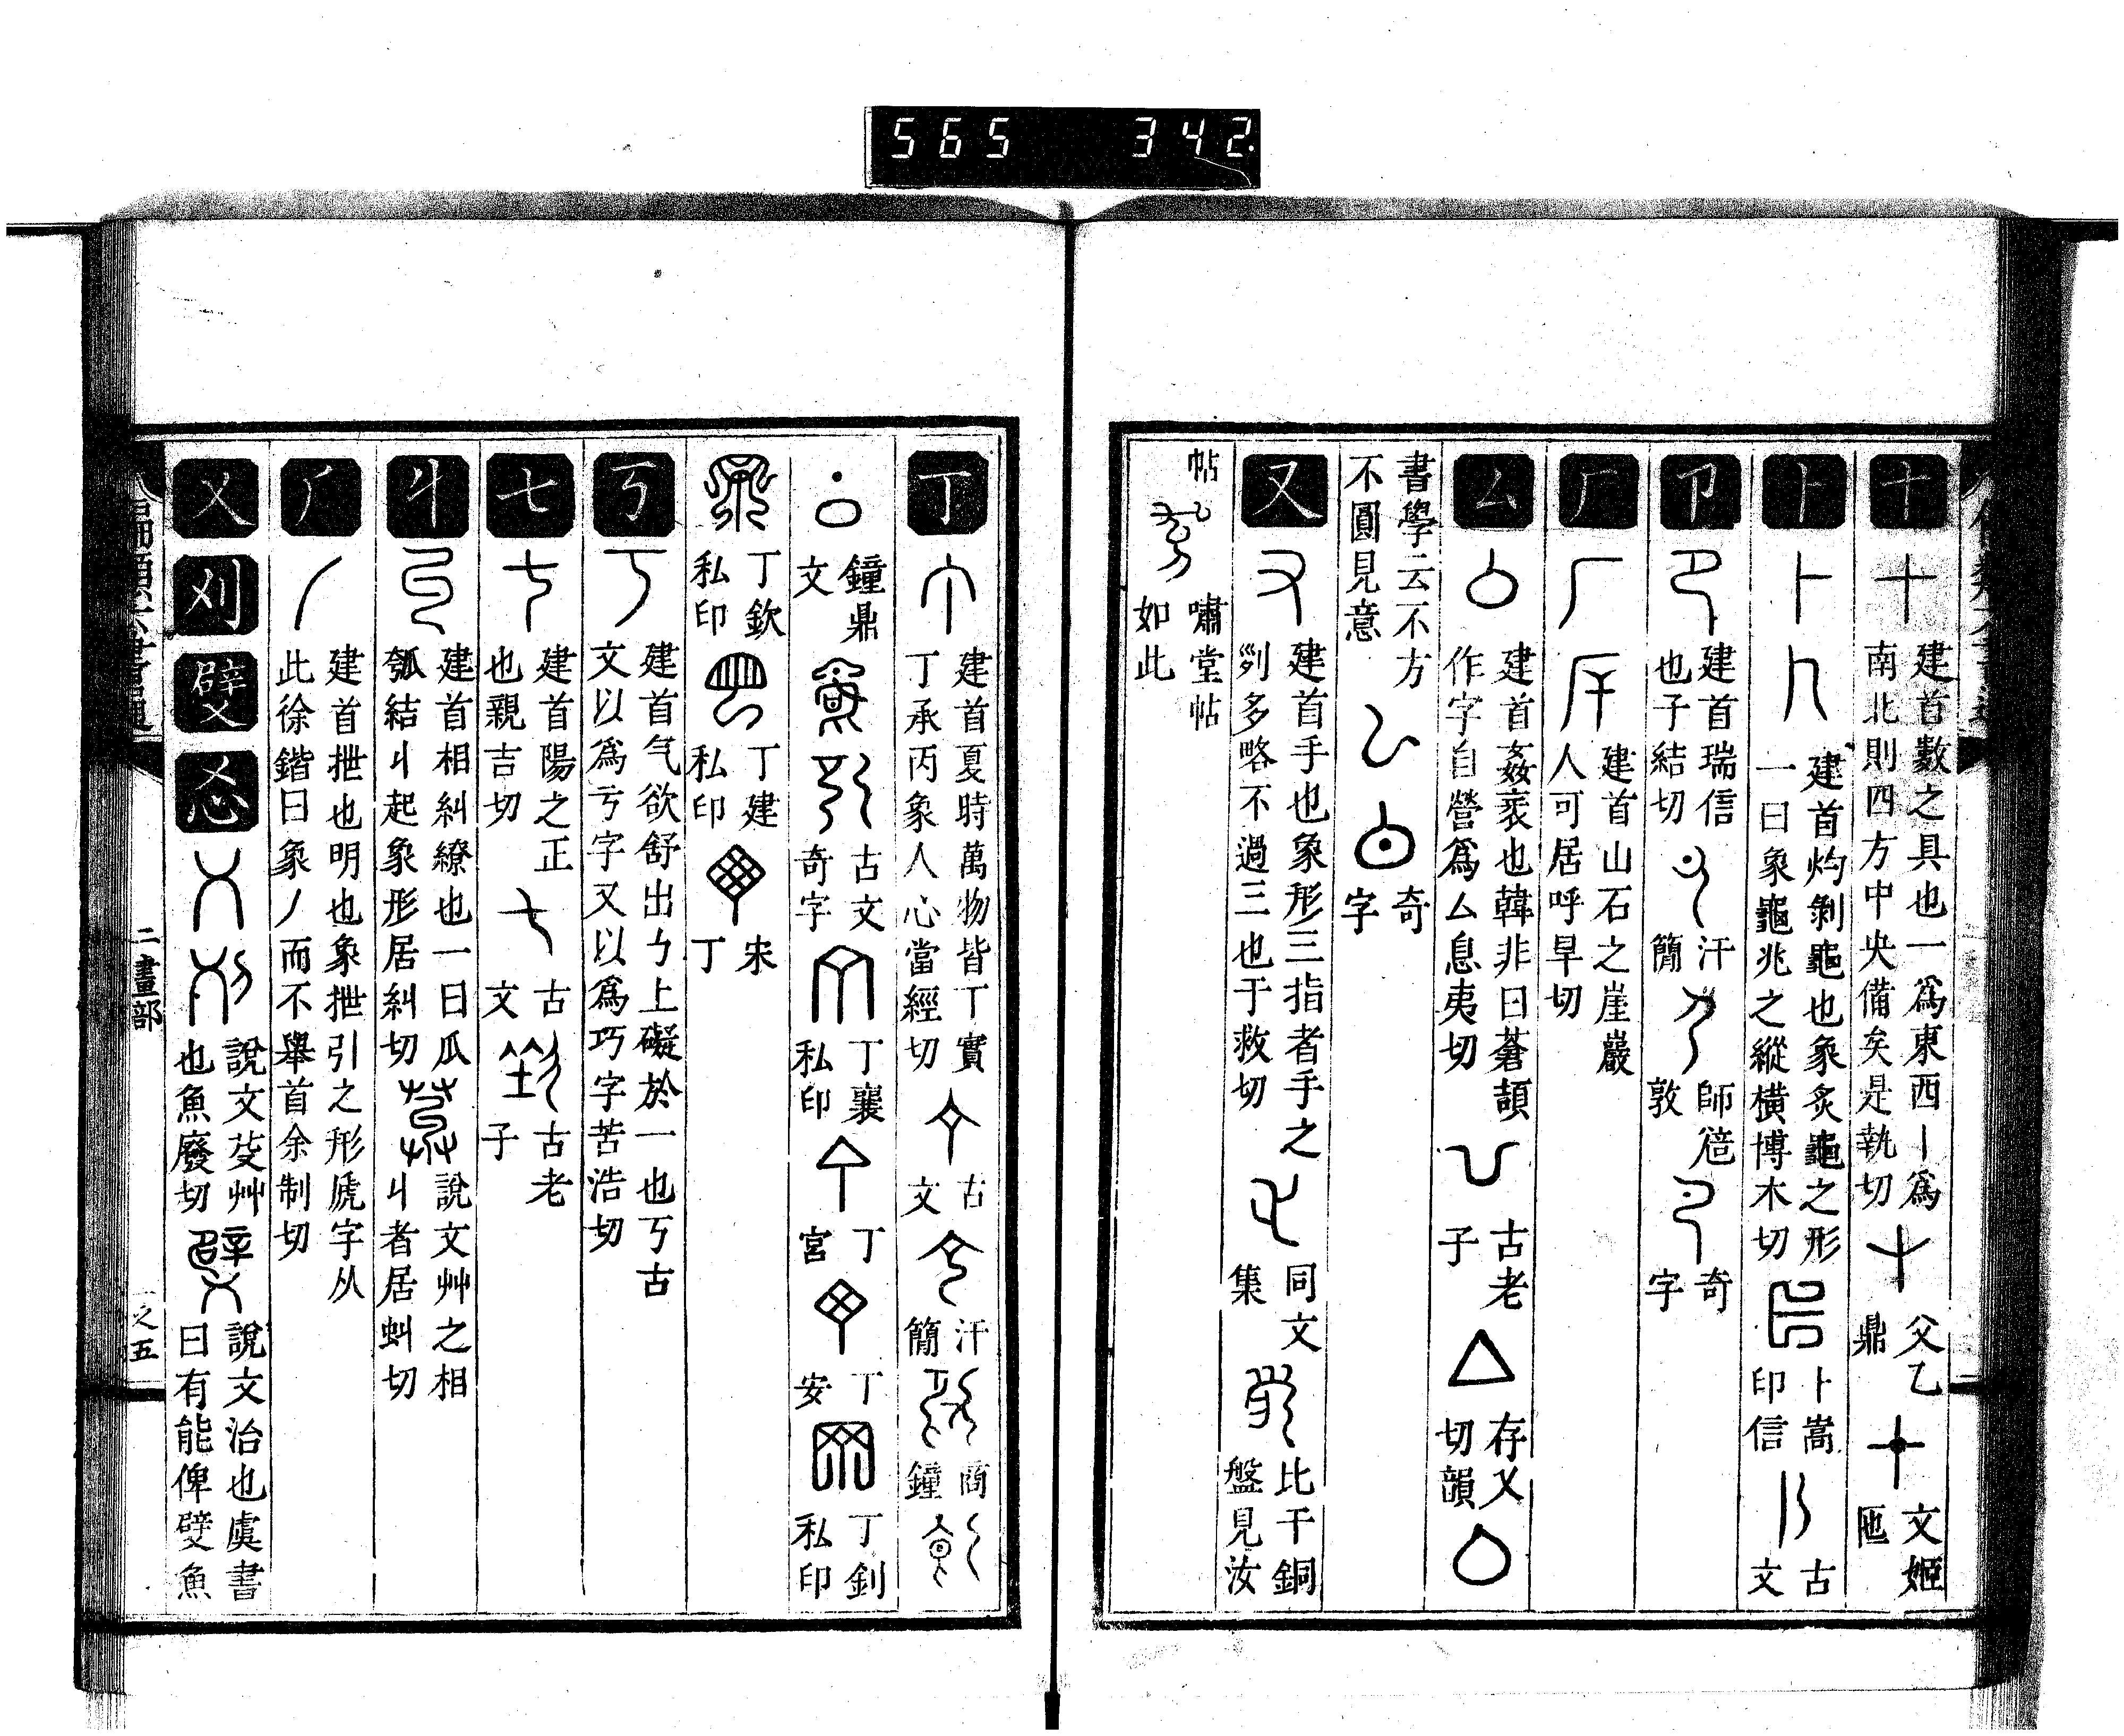 565 342
十 建首數之具也一爲東西丨爲南北則四方中央備矣是執切 父乙鼎 文姬匜
卜 建首灼剝龜也象炙龜之形一曰象龜兆之縱橫博木切 卜嵩印信 古文
卩 建首瑞信也子結切 汗簡 師𩛥敦 奇字
厂 建首山石之崖巖人可居呼旱切
厶 建首姦衺也韓非曰蒼頡作字自營爲厶息夷切 古老子 存乂切韻
書學云不方不圓見意 奇字
又 建首手也象形三指者手之𠛱多略不過三也于救切 同文集 比干銅盤見汝
帖 嘯堂帖如此
丁 建首夏時萬物皆丁實丁承丙象人心當經切 古文 汗簡 商鐘
鐘鼎文 古文奇字 丁襄私印 丁宮 丁安 丁釗私印
丁欽私印 丁建私印 宋丁
丂 建首气欲舒出㇉上礙於一也丂古文以爲亏字又以爲巧字苦浩切
七 建首陽之正也親吉切 古文 古老子
丩 建首相糾繚也一曰瓜瓠結丩起象形居糾切 說文艸之相丩者居虯切
𠂆 建首抴也明也象抴引之形虒字从此徐鍇曰象丿而不舉首余制切
乂 刈 𨐢 忞 說文芟艸也魚廢切 說文治也虞書曰有能俾𨐢魚
二畫部 之五